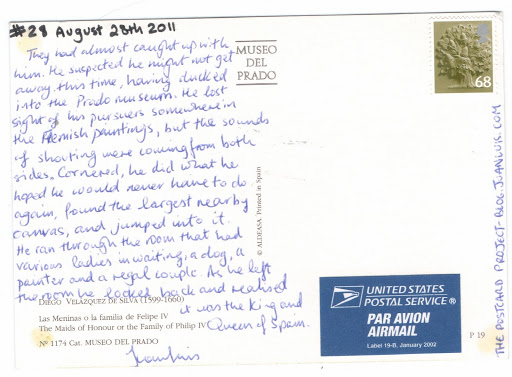 #28 August 28th 2011
They had almost caught up with
him. He suspected he might not get
away this time, having ducked
into the Prado museum. He lost
sight of his pursuers somewhere in
the Flemish paintings, but the sounds
of shouting were coming from both
sides. Cornered, he did what he
hoped he would never have to do
again, found the largest nearby
canvas, and jumped into it.
He ran through the room that had
various ladies in waiting, a dog, a
painter and a regal couple. As he left
the room he looked back and realised
it was the King and
Queen of Spain.
Juan Luis
DIEGO VELAZQUEZ DE SILVA (1599-1660)
Las Meninas o la familia de Felipe IV
The Maids of Honour or the Family of Philip IV
Nº 1174 Cat. MUSEO DEL PRADO
MUSEO
DEL
PRADO
© ALDEASA Printed in Spain
68
UNITED STATES
POSTAL SERVICE®
PAR AVION
AIRMAIL
Label 19-B, January 2002
P 19
THE POSTCARD PROJECT - BLOG.JUANLUIS.COM